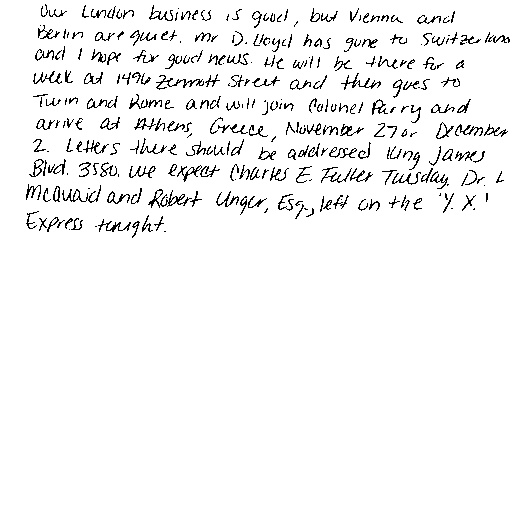 Our London business is good, but Vienna and
Berlin are quiet. Mr D. Lloyd has gone to Switzerland
and I hope for good news. He will be there for a
week at 1496 Zermott Street and then goes to
Turin and Rome and will join Colonel Parry and
arrive at Athens, Greece, November 27 or December
2. Letters there should be addressed King James
Blvd. 3580. We expect Charles E. Fuller Tuesday. Dr. L
McQuaid and Robert Unger, Esq., left on the 'Y. X.'
Express tonight.